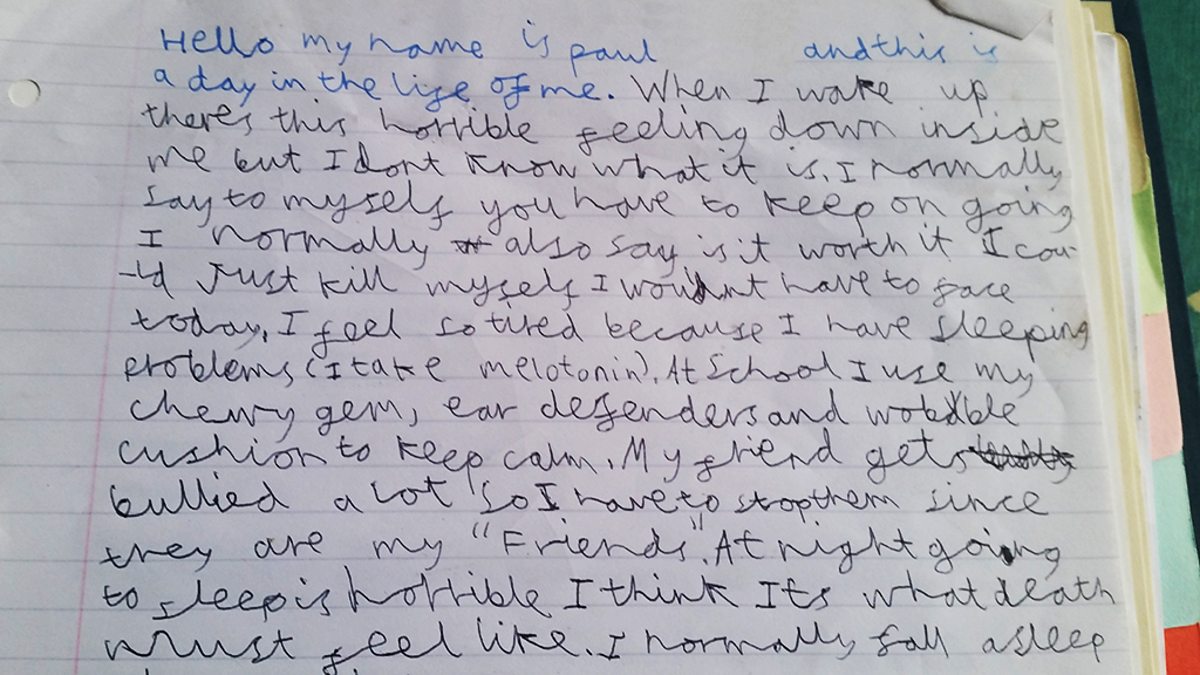 Hello my name is paul and this is
a day in the life of me. When I wake up
theres this horrible feeling down inside
me but I dont know what it is. I normally
say to myself you have to keep on going
I normally also say is it worth it I cou
-ld Just kill myself I wouldnt have to face
today. I feel so tired because I have sleeping
problems (I take melotonin). At School I use my
chewy gem, ear defenders and wobble
cushion to keep calm. My friend gets
bullied a lot so I have to stop them since
they are my "Friends". At night going
to sleep is horrible I think Its what death
must feel like. I normally fall asleep